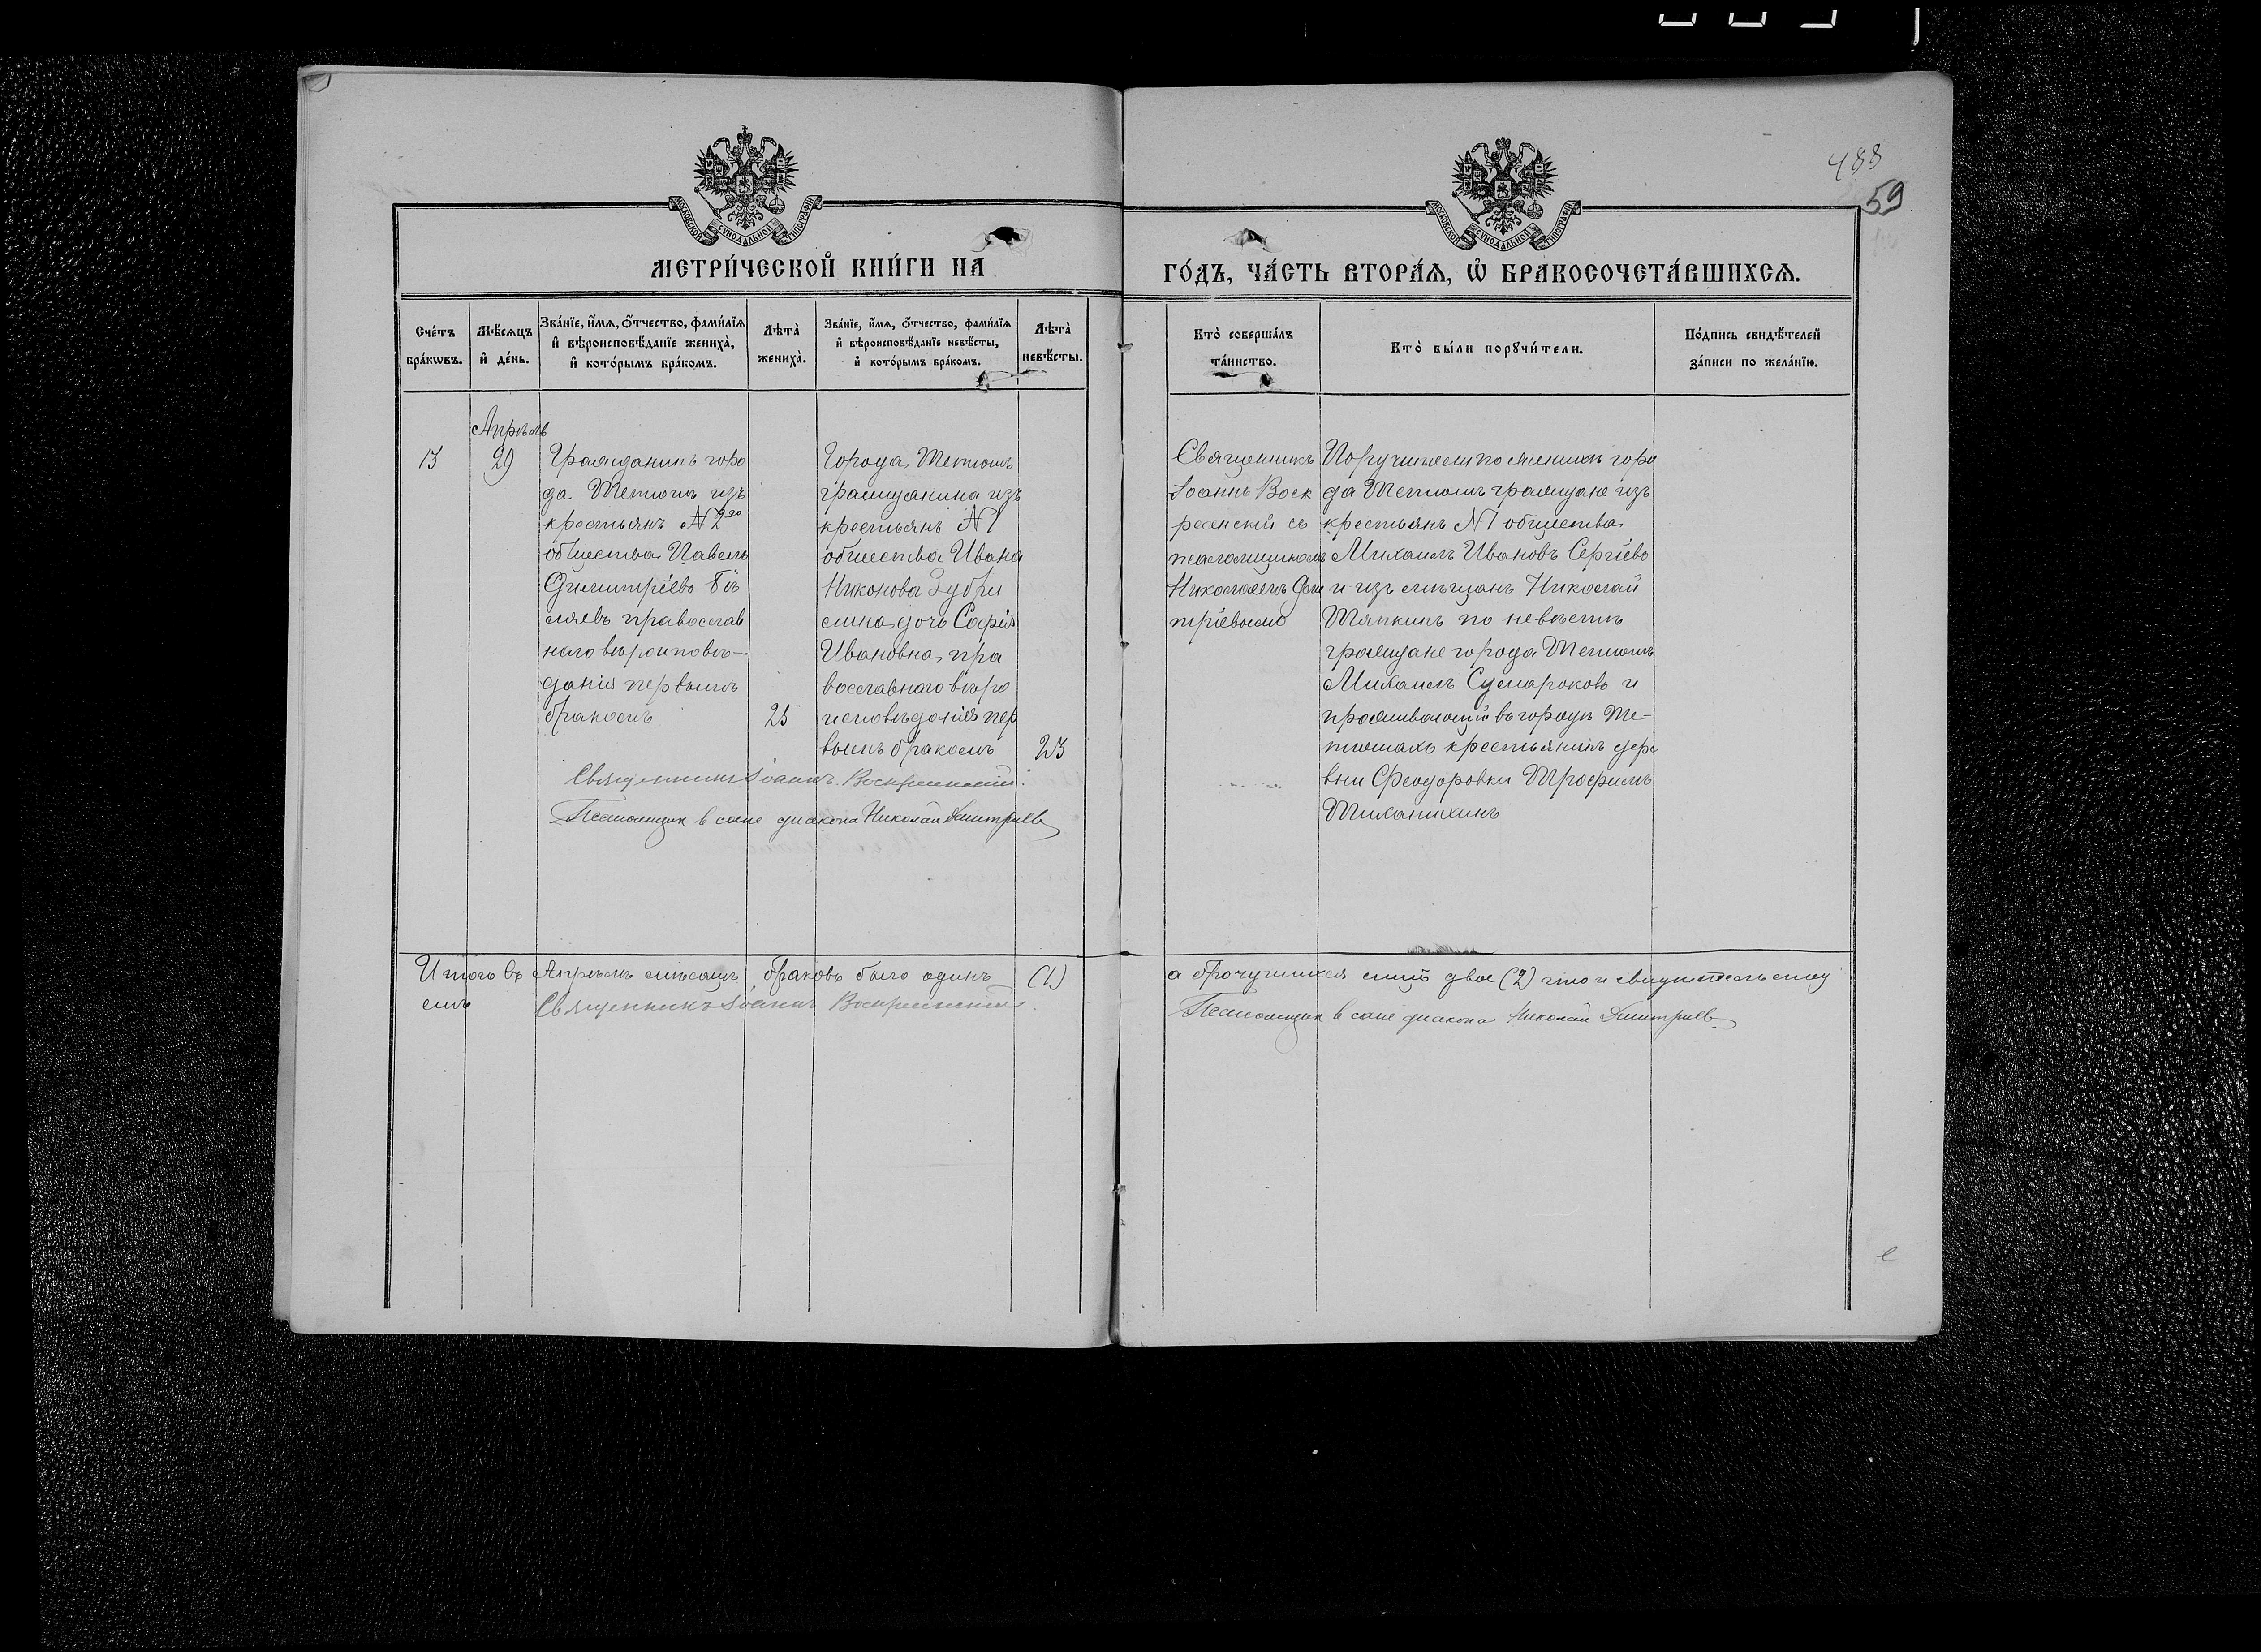 488
59
МОСКОВСКОЙ СѴНОДАЛЬНОЙ ТИПОГРАФІИ
МОСКОВСКОЙ СѴНОДАЛЬНОЙ ТИПОГРАФІИ
МЕТРИ́ЧЕСКОЙ КНИ́ГИ НА
ГО́ДЪ, ЧА́СТЬ ВТОРА́Ѧ, Ѽ БРАКОСОЧЕТА́ВШИХСѦ.
Сче́тъ
бра́кѡвъ.
Мѣ́сяцъ
и҆ де́нь.
Зва́нїе, и҆́мя, ѻ҆́тчество, фами́лїя
и҆ вѣроисповѣ́данїе жениха̀,
и҆ кото́рымъ бра́комъ.
Лѣта̀
жениха̀.
Зва́нїе, и҆́мя, ѻ҆́тчество, фами́лїя
и҆ вѣроисповѣ́данїе невѣ́сты,
и҆ кото́рымъ бра́комъ.
Лѣта̀
невѣ́сты.
Кто̀ соверша́лъ
та́инство.
Кто̀ бы́ли порꙋчи́тели.
По́дпись свидѣ́телей
за́писи по жела́нїю.
Апрѣль
13
29
Гражданинъ горо
да Тетюшъ изъ
крестьянъ N 2го
общества Павелъ
Димитріевъ Бѣ
ляевъ православ
наго вѣроиповѣ-
данія первымъ
бракомъ
25
Города Тетюшъ
гражданина изъ
крестьянъ N 1
общества Ивана
Никонова Зубри
лина дочь Софія
Ивановна пра
вославнаго вѣро
исповѣданія пер
вымъ бракомъ
23
Священникъ Іоаннъ Воскресенскій.
Псаломщик в сане диакона Николай Дмитриев
Священникъ
Іоаннъ Воск
ресенскій съ
псаломщикомъ
Николаемъ Дми
тріевымъ
Поручители по женихѣ горо
да Тетюшъ граждане изъ
крестьянъ N 1 общества
Михаилъ Ивановъ Сергіевъ
и изъ мѣщанъ Николай
Тяпкинъ по невѣстѣ
граждане города Тетюшъ
Михаилъ Сумароковъ и
проживающій въ городѣ Те-
тюшахъ крестьянинъ дере
вни Феодоровки Трофимъ
Миханихинъ
Итого въ Апрѣлѣ мѣсяцѣ браковъ было одинъ (1)
а брачущихся лицъ двое (2) что и свидѣтельству
емъ Священникъ Іоаннъ Воскресенскій.
Псаломщик в сане диакона Николай Дмитриев